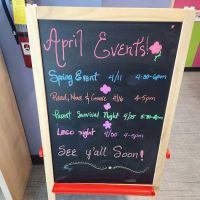 April Events!
Spring Event 4/11 4:30-6pm
Read, Make & Game 4/16 4-5pm
Parent Survival Night 4/25 5:30-8pm
Lego Night 4/30 4-5pm
See y'all Soon!